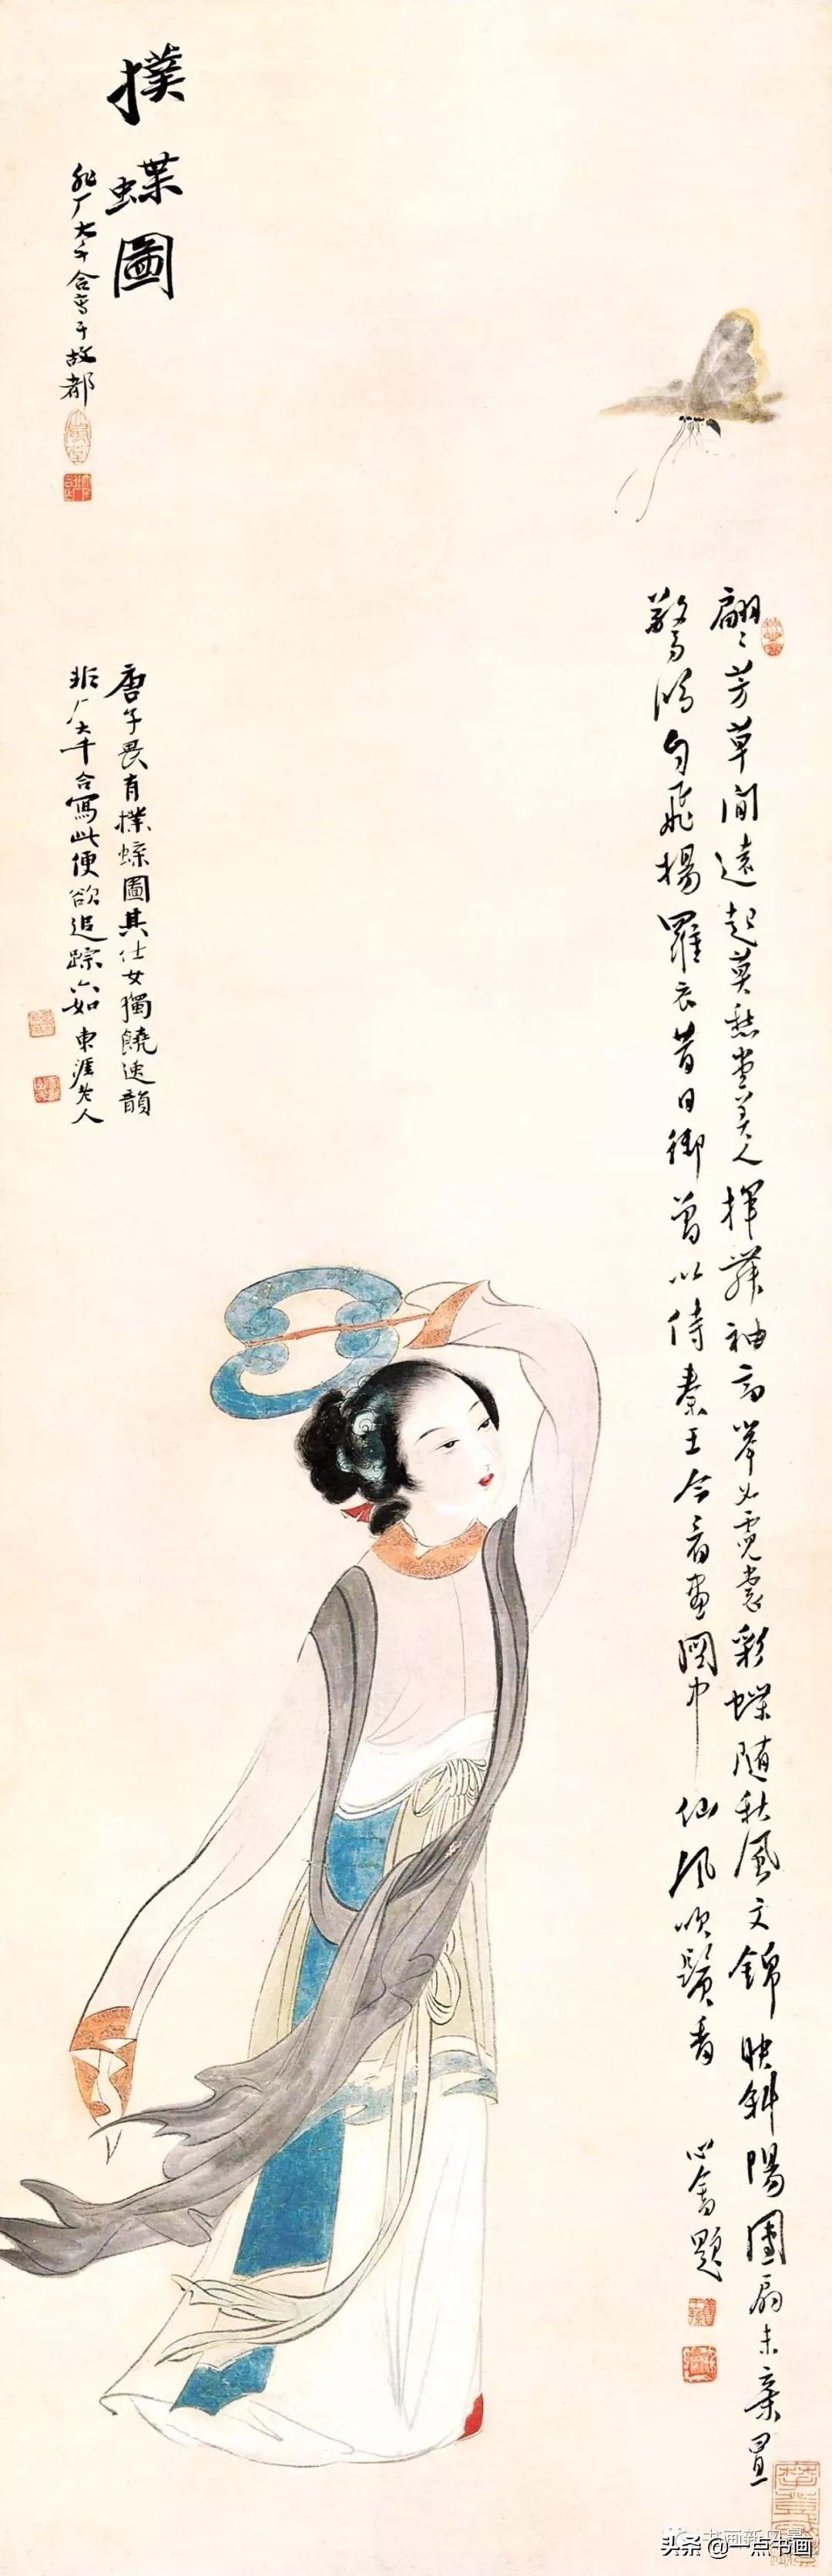 撲蝶圖
非厂大千合寫于故都
翩〻芳草間遠起莫愁堂美人揮舞袖高举如霓裳彩蝶隨秋風文錦映斜陽團扇未棄置
驚鴻自飛揚羅衣昔日御曾以侍秦王今看畫圖中仙風吹鬢香
心畬題
唐子畏有撲蝶圖其仕女獨饒逸韻
非厂大千合寫此便欲追踪六如 東涯老人
头条 @一点书画